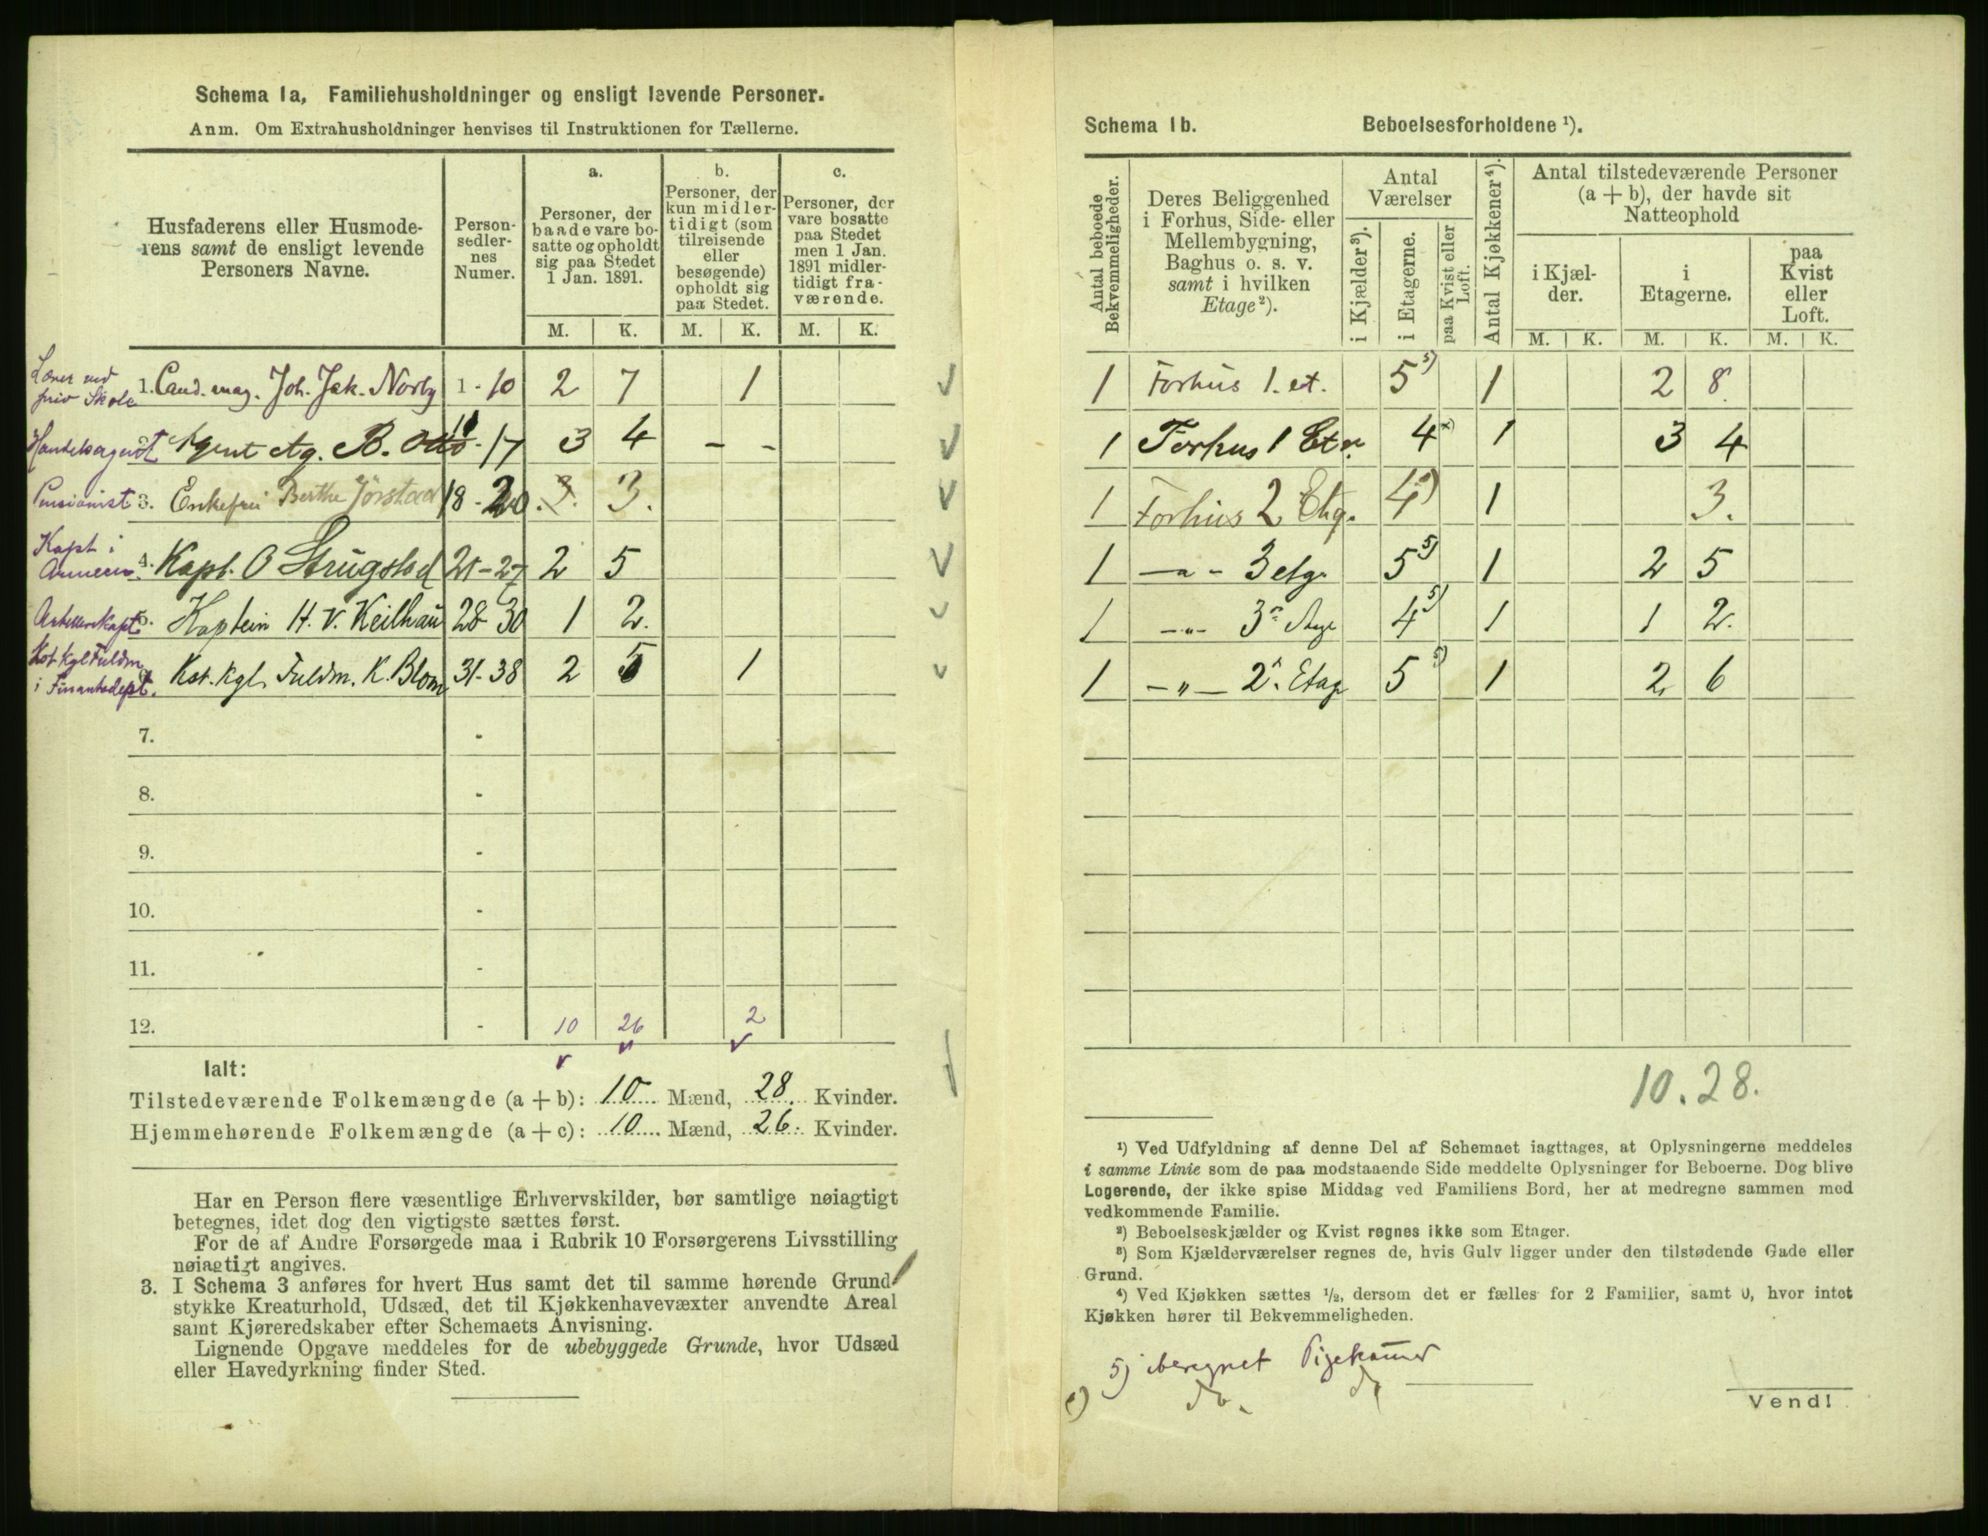 Schema 1a, Familiehusholdninger og ensligt levende Personer.
Anm. Om Extrahusholdninger henvises til Instruktionen for Tællerne.
Husfaderens eller Husmode-
rens samt de ensligt levende
Personers Navne.
Person-
sedler-
nes
Numer.
a.
Personer, der
baade vare bo-
satte og opholdt
sig paa Stedet
1 Jan. 1891.
b.
Personer, der
kun midler-
tidigt (som
tilreisende
eller
besøgende)
opholdt sig
paa Stedet.
c.
Personer, der
vare bosatte
paa Stedet
men 1 Jan.
1891 midler-
tidigt fra-
værende.
M. K. M. K. M. K.
Lærer ved
priv Skole
1. Cand. mag. Joh. Jak. Norby 1 - 10 2 7 1
Handelsagent Agent Ag. B. Otto 11 - 17 3 4 - -
Pensionist 3. Enkefru Berthe Jørstad 18 - 20 3. 3.
Kapt i
Armeen 4. Kapt. O Strugstad 21 - 27 2 5
Artillerikapt 5. Kaptein H. V. Keilhau 28 - 30 1 2.
Kst. Kgl Fuldm
i Finantsdept. Kst. Kgl. Fuldm. K. Blom 31 - 38 2 5 1
7. -
8. -
9. -
10. -
11. -
12. - 10 26 2
Ialt:
Tilstedeværende Folkemængde (a + b): 10 Mænd, 28. Kvinder.
Hjemmehørende Folkemængde (a + c): 10 Mænd, 26. Kvinder.
Har en Person flere væsentlige Erhvervskilder, bør samtlige nøiagtigt
betegnes, idet dog den vigtigste sættes først.
For de af Andre Forsørgede maa i Rubrik 10 Forsørgerens Livsstilling
nøiagtigt angives.
3. I Schema 3 anføres for hvert Hus samt det til samme hørende Grund-
stykke Kreaturhold, Udsæd, det til Kjøkkenhavevæxter anvendte Areal
samt Kjøreredskaber efter Schemaets Anvisning.
Lignende Opgave meddeles for de ubebyggede Grunde, hvor Udsæd
eller Havedyrkning finder Sted.
Schema 1b. Beboelsesforholdene ¹).
Antal beboede
Bekvemmeligheder.
Deres Beliggenhed
i Forhus, Side- eller
Mellembygning,
Baghus o. s. v.
samt i hvilken
Etage ²).
Antal
Værelser
i Kjælder ³).
i Etagerne.
paa Kvist eller
Loft.
Antal Kjøkkener ⁴).
Antal tilstedeværende Personer
(a + b), der havde sit
Natteophold
i Kjæl-
der.
i
Etagerne.
paa
Kvist
eller
Loft.
M. K. M. K. M. K.
1 Forhus 1. et. 5 ⁵) 1 2 8.
1 Forhus 1 Etg. 4 ˣ) 1 3 4
1 Forhus 2 Etg. 4 1 3.
1 -"- 3 etg. 5 ⁵) 1 2 5
1 -"- 3. Etage 4 ⁵) 1 1 2.
1 -"- 2. Etage 5 ⁵) 1 2 6
10. 28.
¹) Ved Udfyldning af denne Del af Schemaet iagttages, at Oplysningerne meddeles
i samme Linie som de paa modstaaende Side meddelte Oplysninger for Beboerne. Dog blive
Logerende, der ikke spise Middag ved Familiens Bord, her at medregne sammen med
vedkommende Familie.
²) Beboelseskjælder og Kvist regnes ikke som Etager.
³) Som Kjælderværelser regnes de, hvis Gulv ligger under den tilstødende Gade eller
Grund.
⁴) Ved Kjøkken sættes ½, dersom det er fælles for 2 Familier, samt 0, hvor intet
Kjøkken hører til Bekvemmeligheden.
5) iberegnet Pigekammer
do. do
Vend!